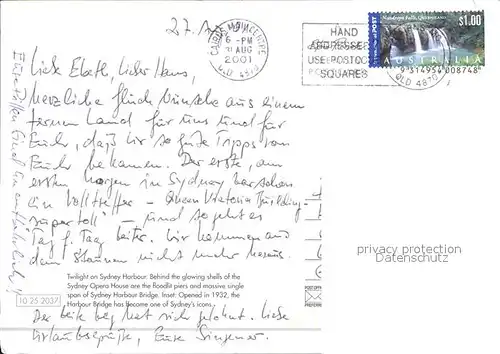 27.
CAIRNS
6 - PM
31 AUG
2001
QLD 4870
HAND
ADDRESSERS
USE POSTCODE
SQUARES
INTERNATIONAL POST
Nandroya Falls, Queensland
$1.00
AUSTRALIA
9 314954 008748
QLD 4870
Liebe Elseth, lieber Hans,
herzliche Glückwünsche aus einem
fernen Land für uns und für
Euch, daß wir so gute Tipps von
Euch bekamen. Der erste, am
ersten Morgen in Sydney war schon
ein Volltreffer - Queen Victoria Building -
"supertoll" - und so geht es
Tag f. Tag weiter. Wir kommen aus
dem Staunen nicht mehr heraus.
privacy protection
Twilight on Sydney Harbour: Behind the glowing shells of the
Sydney Opera House are the floodlit piers and massive single
span of Sydney Harbour Bridge. Inset: Opened in 1932, the
Harbour Bridge has become one of Sydney's icons.
10 25 2037
POSTCODE
Der weite Weg hat sich gelohnt. Liebe
Urlaubsgrüße, Eure
sind unentbehrlich!